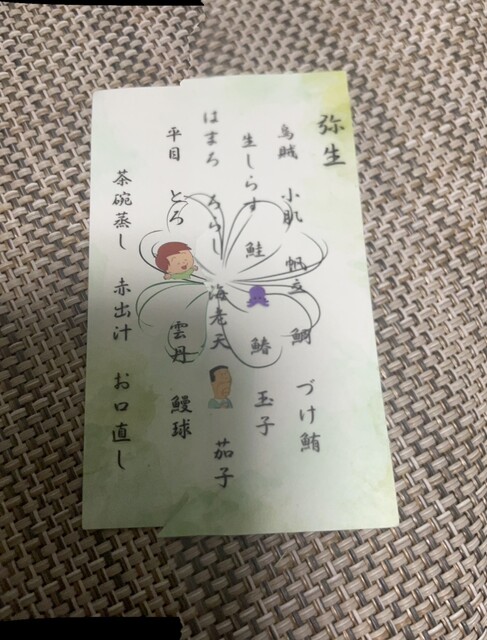 弥生
烏賊 小肌 帆立 鯛 づけ鮪
生しらす 鮭 鰆 玉子
はまろ ちらし 海老天 茄子
平目 とろ 雲丹 鰻球
茶碗蒸し 赤出汁 お口直し